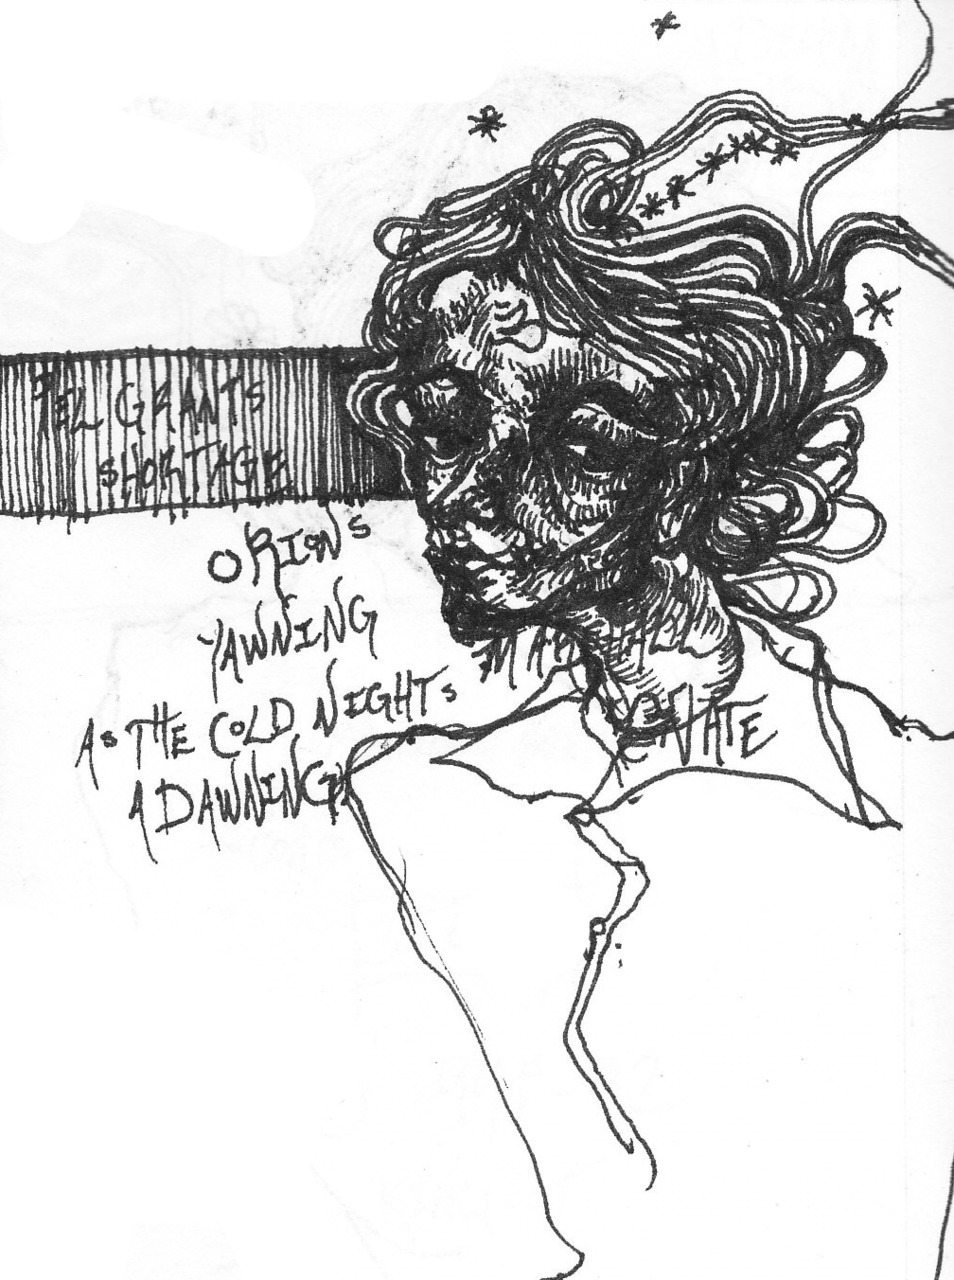 PELL GRANTS
SHORTAGE
ORION'S
YAWNING
AS THE COLD NIGHTS
A DAWNING
MARSHALL
SENATE